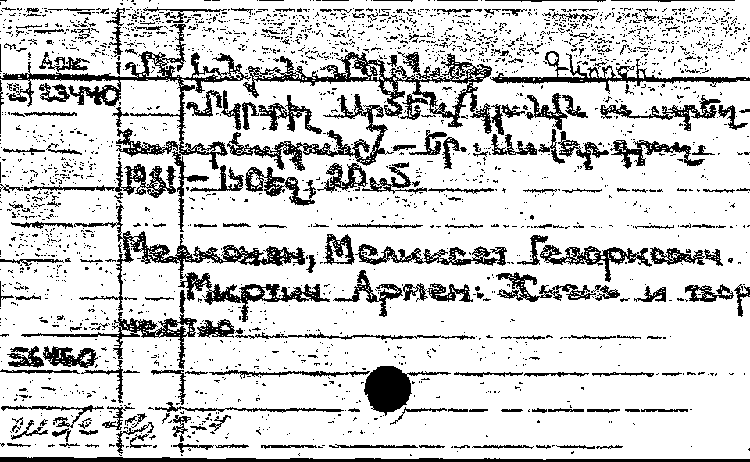 Арм.
Մելքոնյան, Մելիքսեթ Գևորգի
2 23440
Մկրտիչ Արմեն /կյանքն ու ստեղ-
ծագործությունը/ — Եր.: Սովետ. գրող,
1981 — 150 էջ, 20 սմ.
Мелконян, Меликсет Геворкович.
Мкртич Армен: Жизнь и твор
чество.
56460